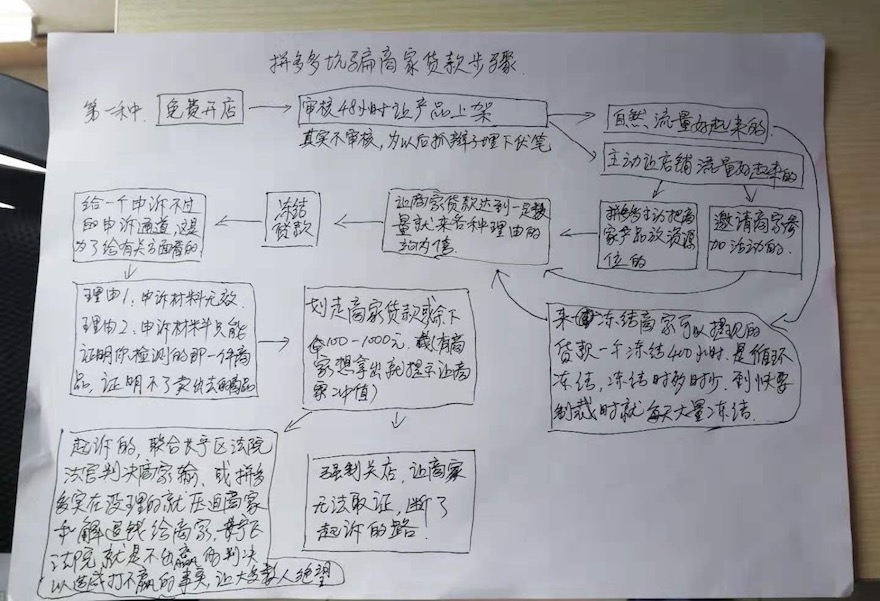 拼多多坑骗商家货款步骤
第一种
免费开店
审核48小时让产品上架
真实不审核，为以后抓辫子埋下伏笔
自然流量好起来的
主动让店铺流量好起来的
拼多多主动把商
家产品放资源
位的
邀请商家参
加活动的
让商家货款达到一定数
量就来各种理由的
冻结
货款
给一个申诉不过
的申诉通道，这是
为了给有关方面看的
理由1、申诉材料无效
理由2、申诉材料只能
证明你检测的那一件商
品，证明不了卖出去的商品
划走商家货款或余下
100-1000元（有商
家想拿出就提示让商
家冲值）
冻结商家可以提现的
货款一千冻结400小时，是循环
冻结，冻结时多时少，到快要
制裁时就每天大量冻结
起诉的，联合长宁区法院
法官判决商家输、或拼多
多实在没理的就压迫商家
和解退钱给商家，长宁区
法院就是不出赢的判决
以造成打不赢的事实，让大多数人绝望
强制关店，让商家
无法取证，断了
起诉的路